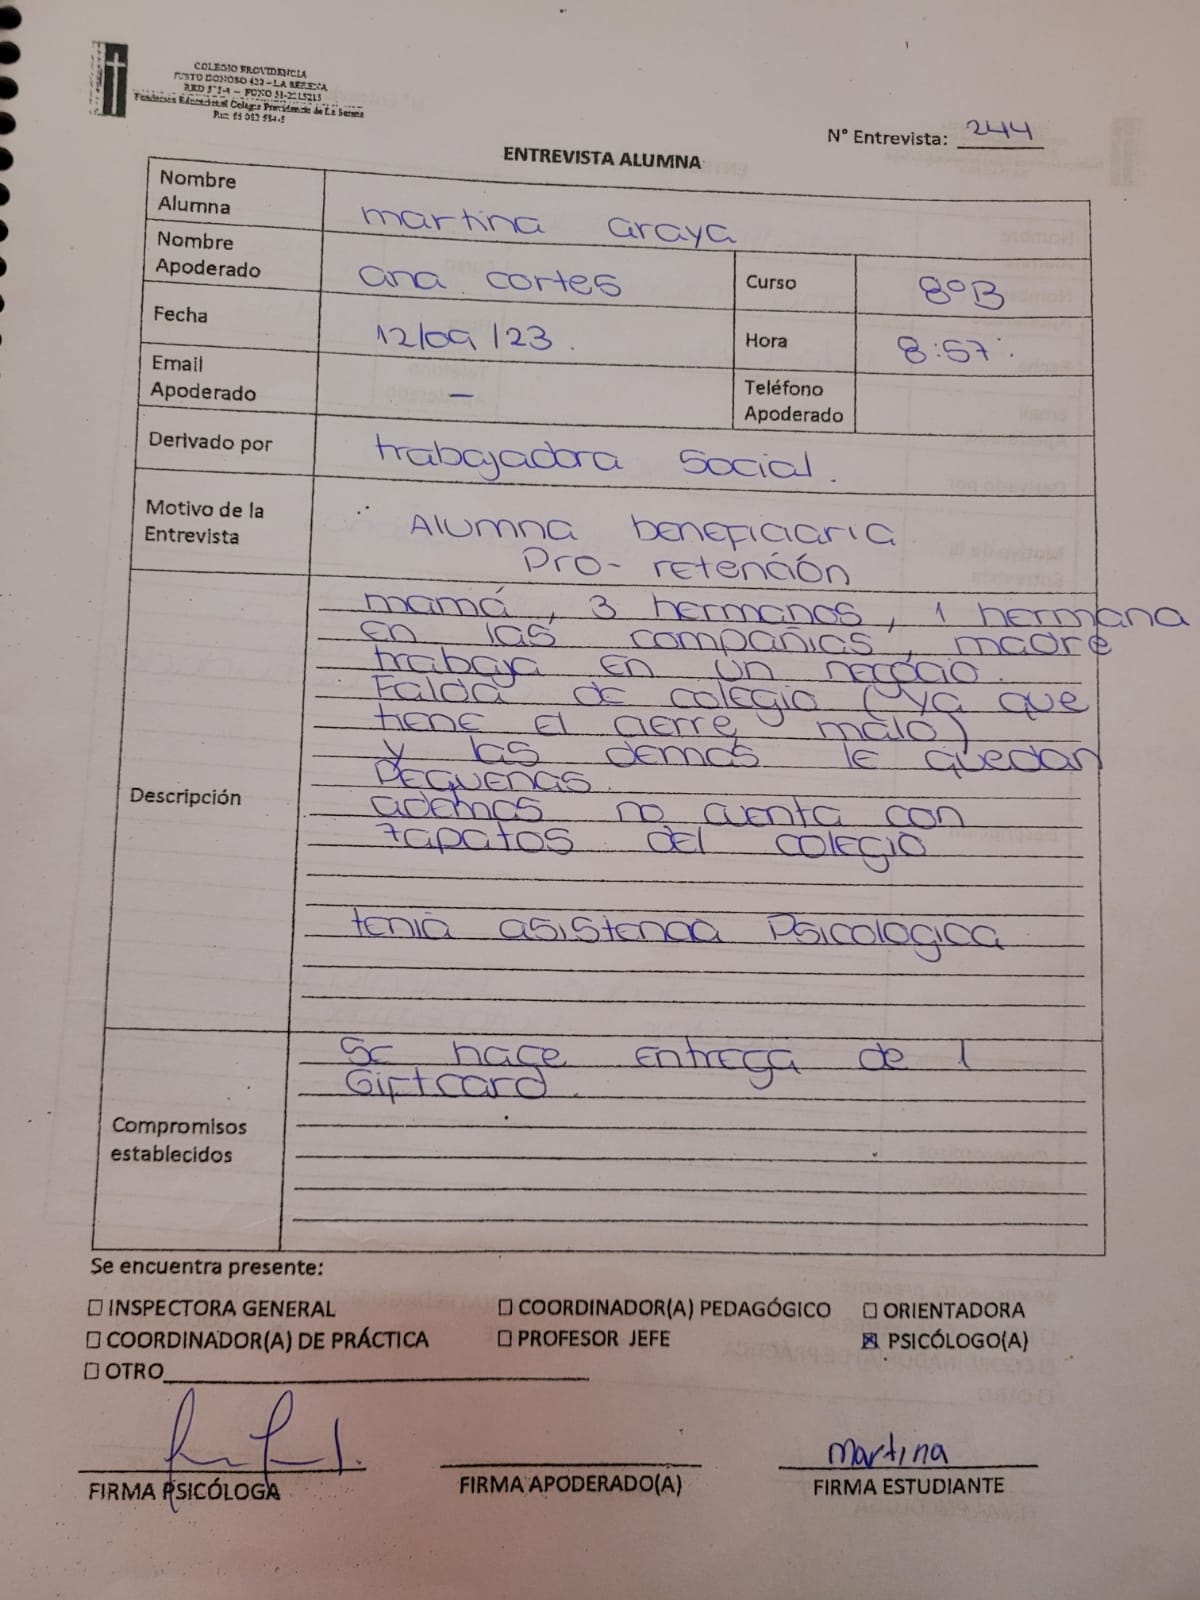 COLEGIO PROVIDENCIA
JUSTO DONOSO 420 – LA SERENA
Fundación Educacional Colegio Providencia de La Serena
N° Entrevista: 244
ENTREVISTA ALUMNA
Nombre Alumna martina araya
Nombre Apoderado ana cortes Curso 8°B
Fecha 12/09/23. Hora 8:57.
Email Apoderado – Teléfono Apoderado
Derivado por trabajadora social.
Motivo de la Entrevista Alumna beneficiaria
Pro-retención
Descripción
mamá, 3 hermanos, 1 hermana
en las compañias, madre
trabaja en un negocio.
Falda de colegio (ya que
tiene el cierre malo)
y las demas le quedan
pequeñas.
ademas no cuenta con
zapatos del colegio
tenia asistencia Psicologica
Compromisos establecidos
Se hace entrega de 1
Giftcard.
Se encuentra presente:
INSPECTORA GENERAL COORDINADOR(A) PEDAGÓGICO ORIENTADORA
COORDINADOR(A) DE PRÁCTICA PROFESOR JEFE ☒ PSICÓLOGO(A)
OTRO
martina
FIRMA PSICÓLOGA FIRMA APODERADO(A) FIRMA ESTUDIANTE